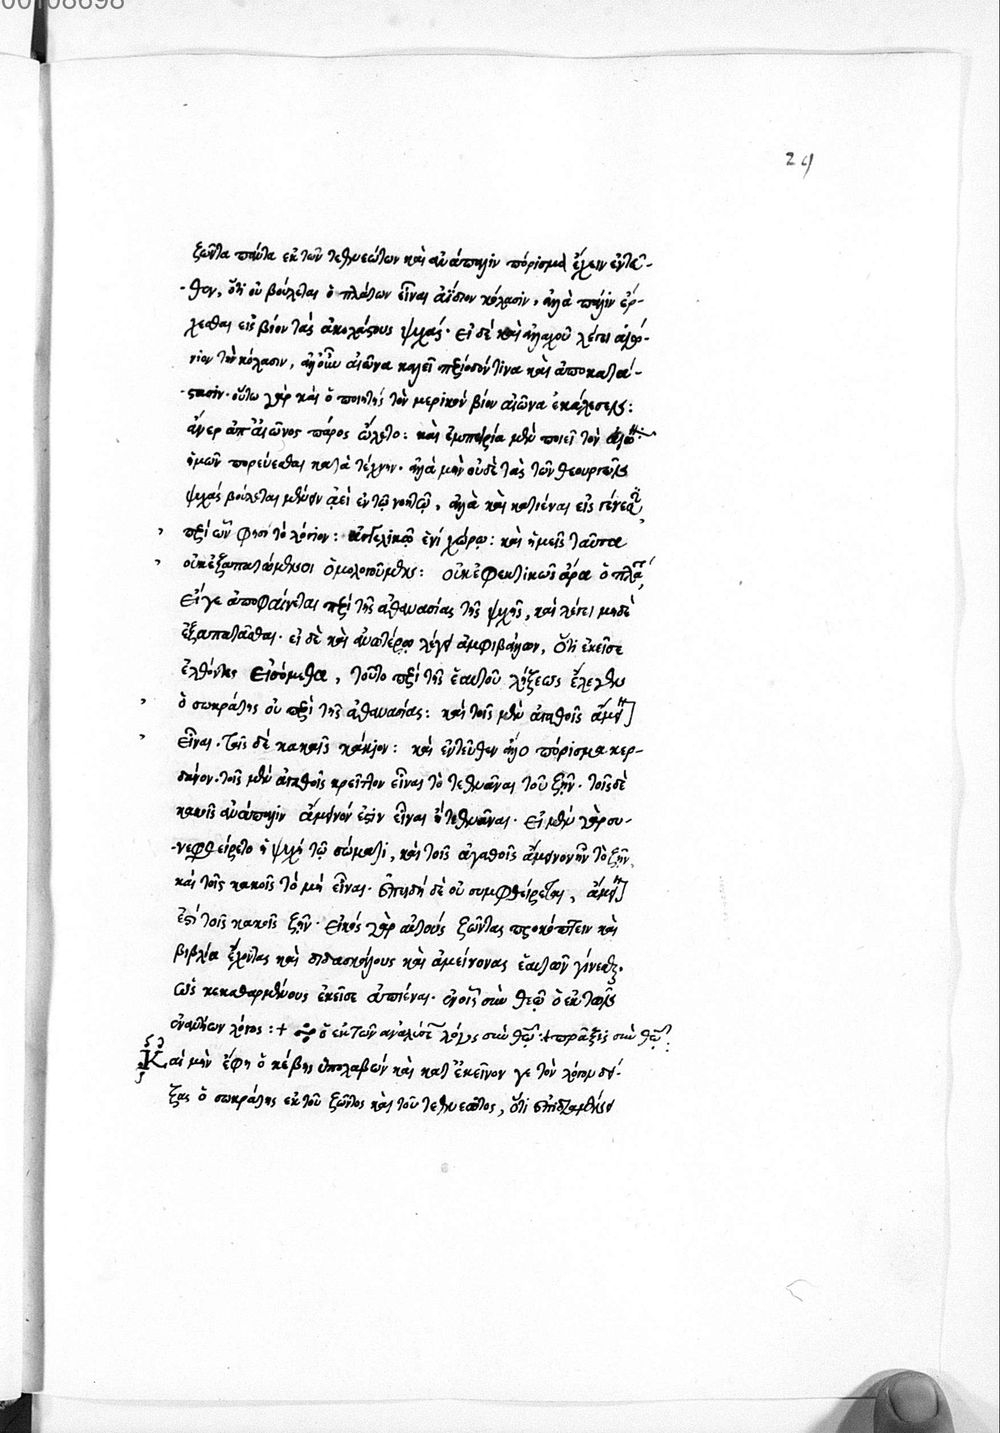 00108698
29
ζῶντα πάντα ἐκ τῶν τεθνεώτων καὶ ἀνάπαλιν πόρισμα ἔχειν ἐντεῦ-
-θεν, ὅτι οὐ βούλεται ὁ πλάτων εἶναι ἀΐδιον κόλασιν, ἀλλὰ πάλιν ἔρ-
χεσθαι εἰς βίον τὰς ἀκολάστους ψυχάς· εἰ δὲ καὶ ἀλλαχοῦ λέγει αἰώ-
νιον τὴν κόλασιν, ἀλλ' οὖν αἰῶνα καλεῖ περίοδόν τινα καὶ ἀποκατά-
-στασιν· οὕτω γὰρ καὶ ὁ ποιητὴς τὸν μερικὸν βίον αἰῶνα ἐκάλεσε:
ἄνερ ἀπ' αἰῶνος πάρος ὤλετο: καὶ ἐμπειρία μὲν ποιεῖ τὸν αἰῶ
ἡμῶν πορεύεσθαι κατὰ τέχνην· ἀλλὰ μὴν οὐδὲ τὰς τῶν θεουργῶν
ψυχὰς βούλεται μένειν ἀεὶ ἐν τῷ νοητῷ, ἀλλὰ καὶ κατιέναι εἰς γένεσιν
περὶ ὧν φησὶ τὸ λόγιον: ἀγγελικῷ ἐνὶ χώρῳ: καὶ ἡμεῖς ταῦτα
οὐκ ἐξαπατώμενοι ὁμολογοῦμεν: οὐκ ἐφεκτικῶς ἄρα ὁ πλά
εἴγε ἀποφαίνεται περὶ τῆς ἀθανασίας τῆς ψυχῆς, καὶ λέγει μηδὲ
ἐξαπατᾶσθαι· εἰ δὲ καὶ ἀνωτέρω λέγει ἀμφιβάλλων, ὅτι ἐκεῖσε
ἐλθόντες εἰσόμεθα, τοῦτο περὶ τῆς ἑαυτοῦ λήξεως ἔλεγεν
ὁ σωκράτης οὐ περὶ τῆς ἀθανασίας: καὶ ταῖς μὲν ἀγαθαῖς ἄμεινον
εἶναι· ταῖς δὲ κακαῖς κάκιον: καὶ ἐντεῦθεν ἄλλο πόρισμα κερ-
δαίνον· τοῖς μὲν ἀγαθοῖς κρεῖττον εἶναι τὸ τεθνᾶναι τοῦ ζῆν· τοῖς δὲ
κακοῖς ἀνάπαλιν ἄμεινόν ἐστιν εἶναι ἢ τεθνᾶναι· εἰ μὲν γὰρ συ-
-νεφθείρετο ἡ ψυχὴ τῷ σώματι, καὶ τοῖς ἀγαθοῖς ἄμεινον ἦν τὸ ζῆν,
καὶ τοῖς κακοῖς τὸ μὴ εἶναι· ἐπειδὴ δὲ οὐ συμφθείρεται, ἄμεινον
ἐπὶ τοῖς κακοῖς ζῆν· εἰκὸς γὰρ αὐτοὺς ζῶντας προκόπτειν καὶ
βιβλία ἔχοντας καὶ διδασκάλους καὶ ἀμείνονας ἑαυτῶν γίνεσθαι·
ὡς κεκαθαρμένους ἐκεῖσε ἀπιέναι· ἐν οἷς σὺν θεῷ ὁ ἐκ τῶν
ἐναντίων λόγος: + ὁ ἐκ τῶν ἀναμνήσεων λόγος σὺν θεῷ: + πρᾶξις σὺν θεῷ:
Καὶ μὴν ἔφη ὁ κέβης ὑπολαβὼν καὶ κατ' ἐκεῖνον γε τὸν λόγον δεί-
ξας ὁ σωκράτης ἐκ τοῦ ζῶντος καὶ τοῦ τεθνεῶτος, ὅτι ἐπιδιαμένει